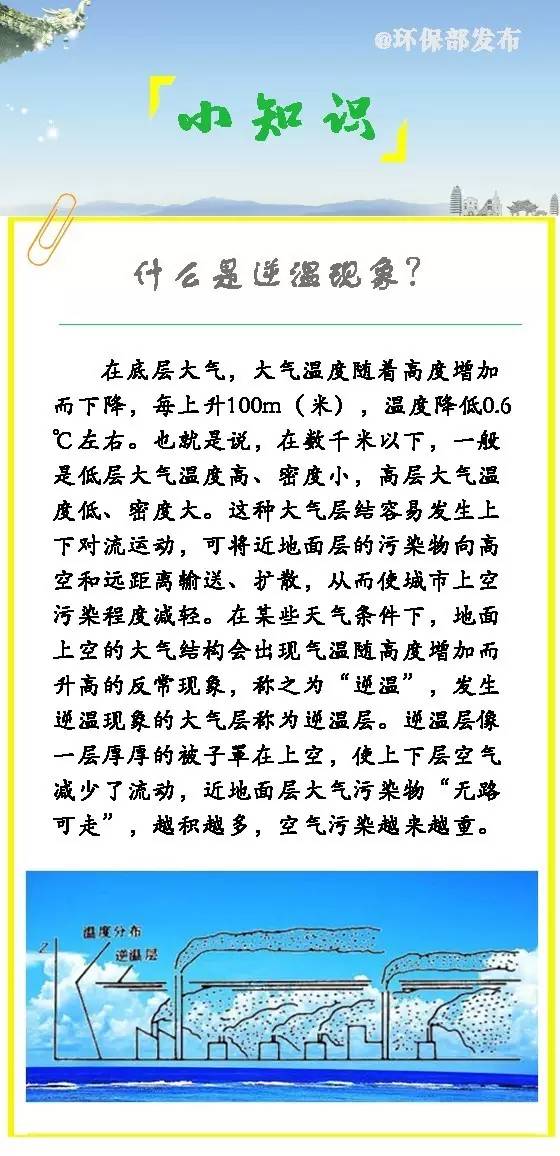 @环保部发布
「小知识」
什么是逆温现象?
在底层大气，大气温度随着高度增加
而下降，每上升100m（米），温度降低0.6
℃左右。也就是说，在数千米以下，一般
是低层大气温度高、密度小，高层大气温
度低、密度大。这种大气层结容易发生上
下对流运动，可将近地面层的污染物向高
空和远距离输送、扩散，从而使城市上空
污染程度减轻。在某些天气条件下，地面
上空的大气结构会出现气温随高度增加而
升高的反常现象，称之为“逆温”，发生
逆温现象的大气层称为逆温层。逆温层像
一层厚厚的被子罩在上空，使上下层空气
减少了流动，近地面层大气污染物“无路
可走”，越积越多，空气污染越来越重。
温度分布
Z
逆温层